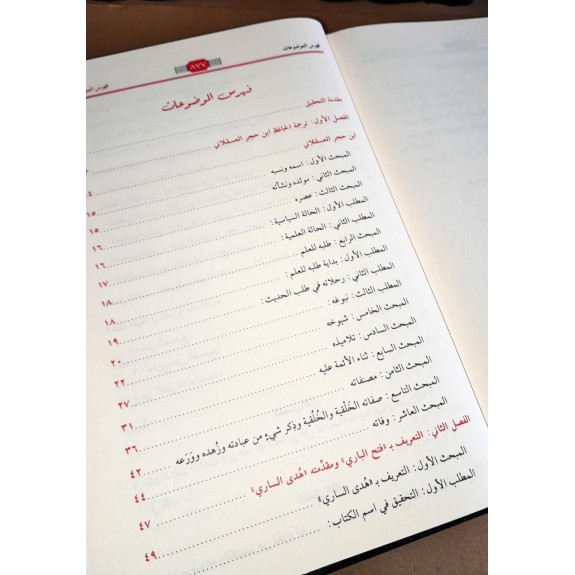 فهرس الموضوعات
٨٧٧
فهرس الموضوعات
مقدمة التحقيق
الفصل الأول: ترجمة الحافظ ابن حجر العسقلاني
ابن حجر العسقلاني
المبحث الأول: اسمه ونسبه
المبحث الثاني: مولده ونشأته
المبحث الثالث: عصره ١٥
المطلب الأول: الحالة السياسية: ١٥
المطلب الثاني: الحالة العلمية: ١٦
المبحث الرابع: طلبه للعلم ١٦
المطلب الأول: بداية طلبه للعلم: ١٧
المطلب الثاني: رحلاته في طلب الحديث: ١٨
المطلب الثالث: نبوغه: ١٨
المبحث الخامس: شيوخه ١٩
المبحث السادس: تلاميذه ٢٠
المبحث السابع: ثناء الأئمة عليه ٢٢
المبحث الثامن: مصنفاته ٢٧
المبحث التاسع: صفاته الخَلْقية والخُلُقية وذكر شيءٍ من عبادته وزُهده ووَرَعه ٣١
المبحث العاشر: وفاته ٣٦
الفصل الثاني: التعريف بـ «فتح الباري» ومقدّمته «هُدى الساري» ٤٢
المبحث الأول: التعريف بـ «هُدى الساري» ٤٤
المطلب الأول: التحقيق في اسم الكتاب: ٤٧
٤٩